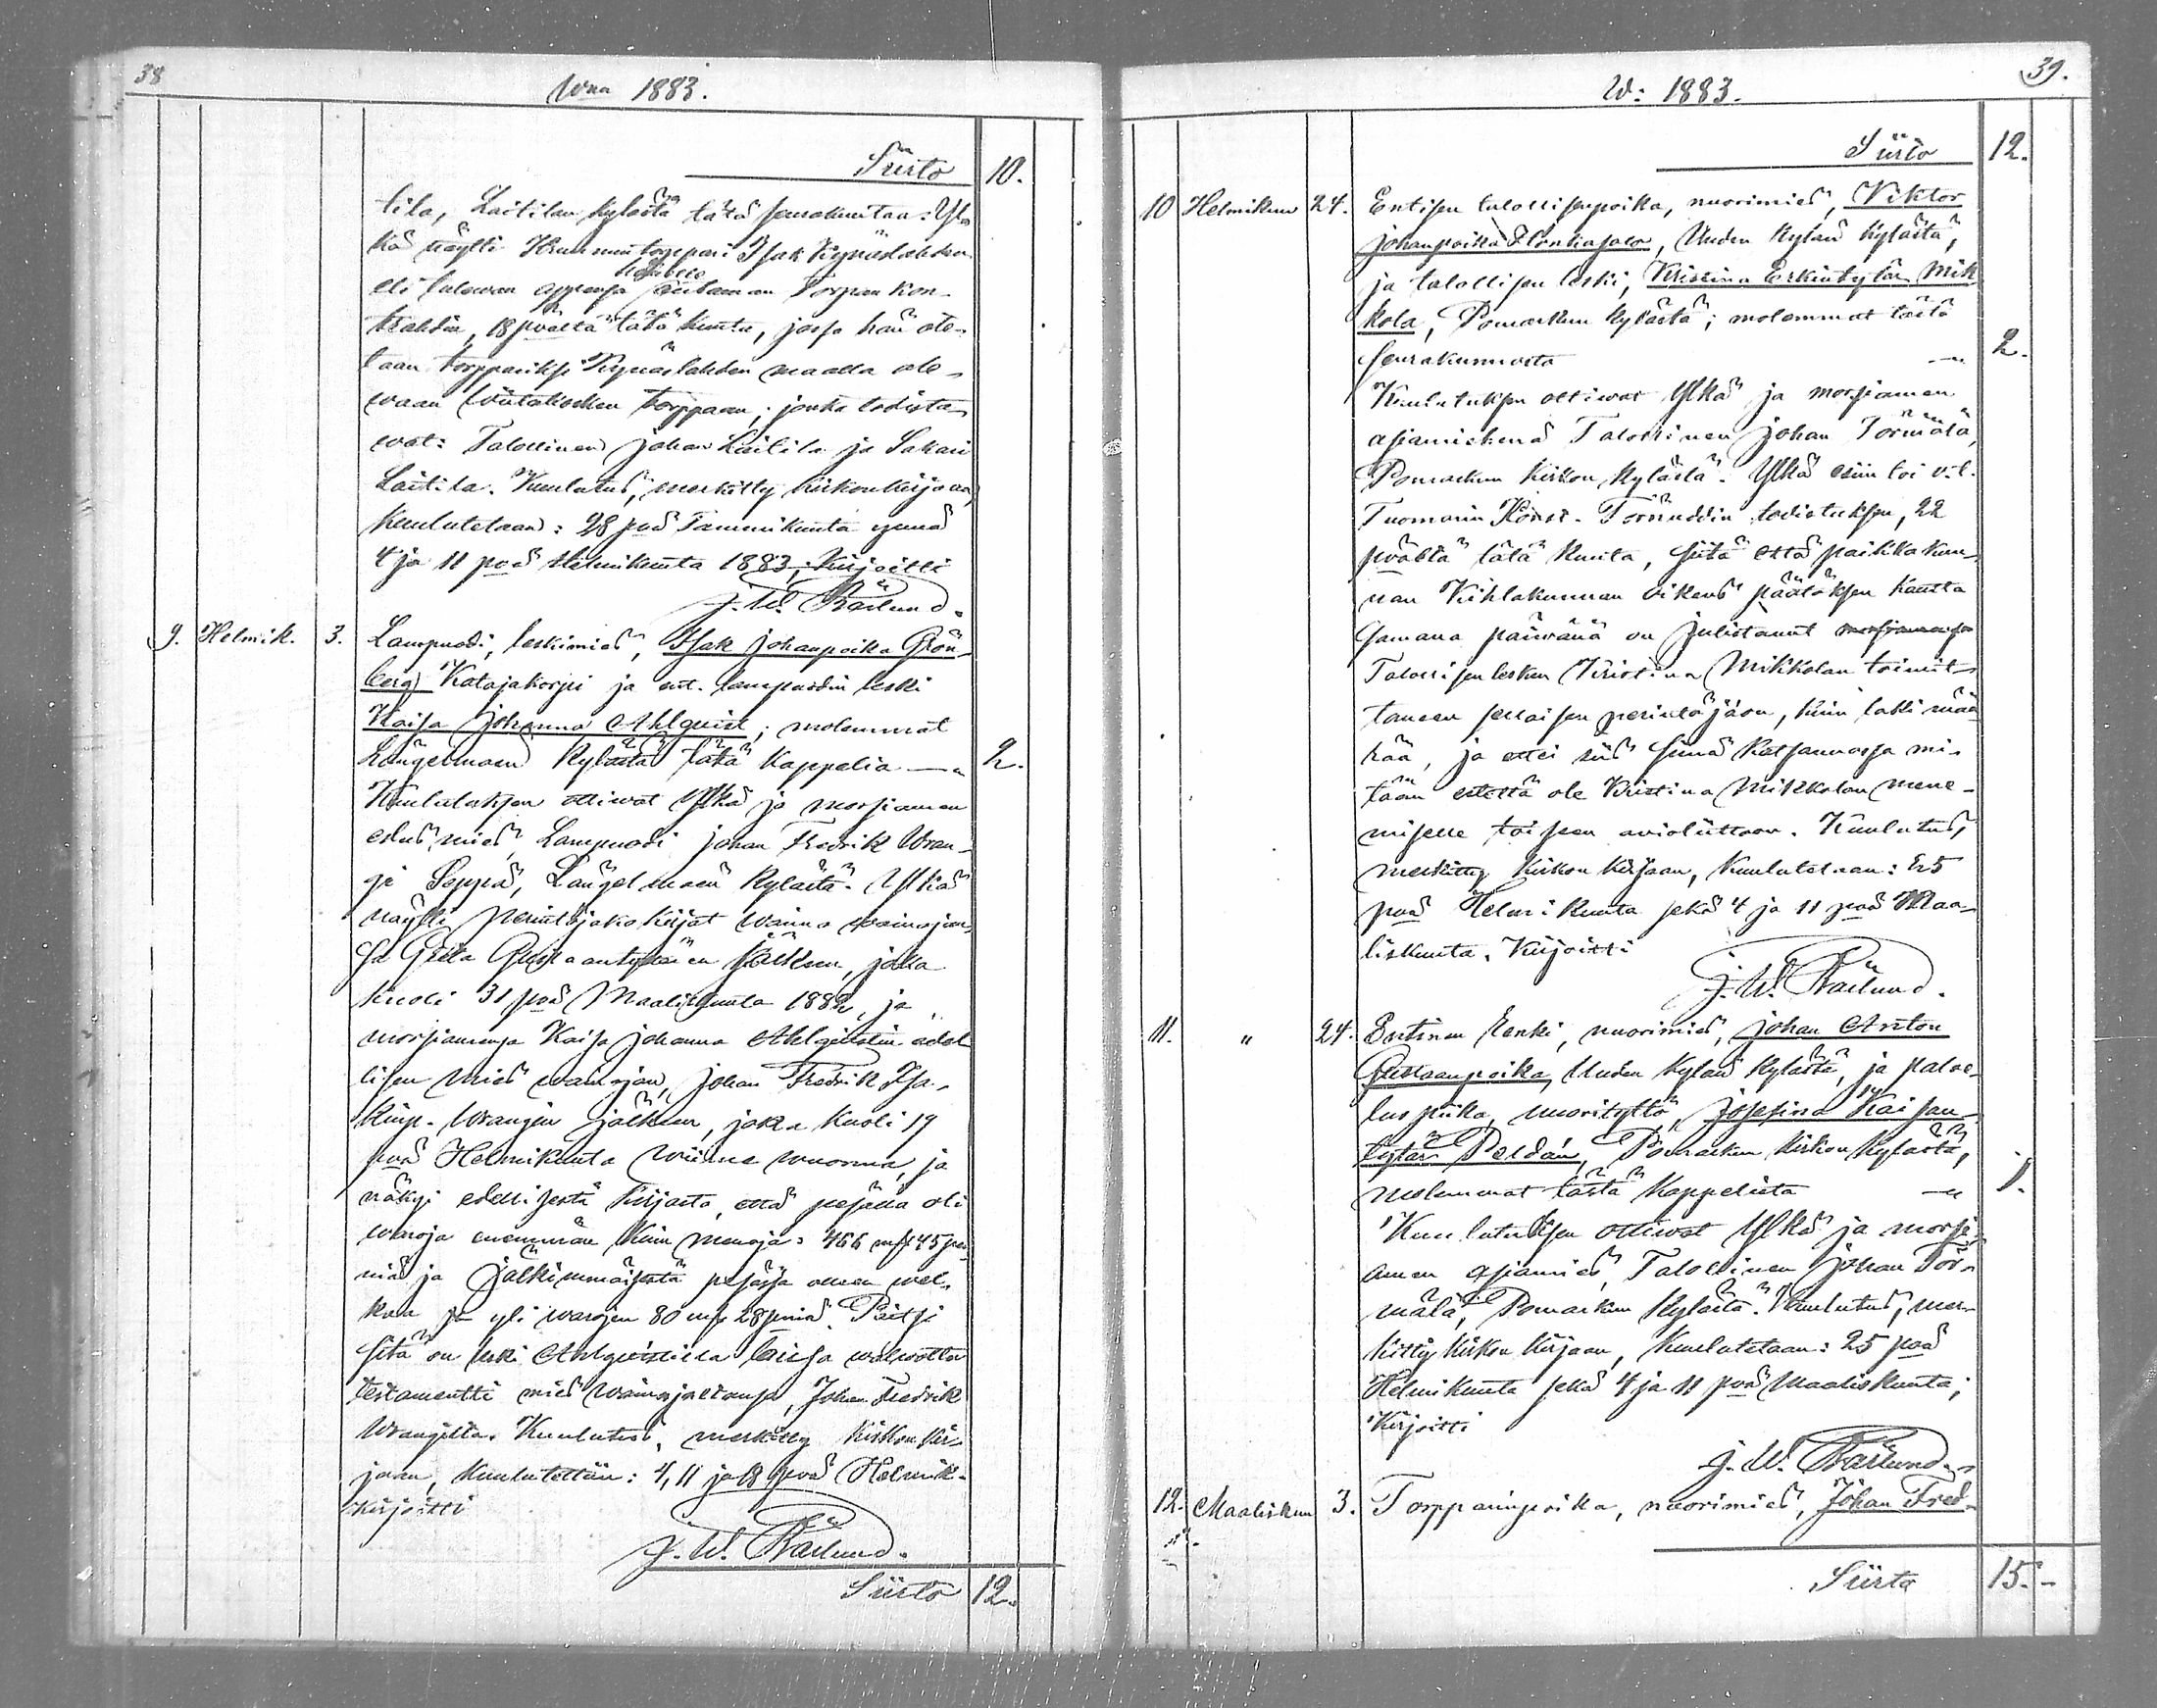 38
Wna 1883.
Siirto 10.
tila, Laitilan kylästä tätä seurakuntaa: Yl-
kä näytti torppari Isak Kynäslahden
eli tulewan appensa torpan kon-
trahdin, 18 p:wältä tätä kuuta, jossa hän ote-
taan torppariksi Kynäslahden maalla ole-
waan Wiitakosken torppaan; jonka todista-
wat: Talollinen Johan Laitila ja Sakari
Laitila. Kuulutus, merkitty kirkonkirjaan,
kuulutetaan: 28 p:nä Tammikuuta ynnä
4 ja 11 p:nä Helmikuuta 1883; Kirjoitti
J. W. Bärlund.
9. Helmik. 3. Lampuodi, leskimies, Isak Johanpoika Grön-
berg Katajakorpi ja ent. lampuodin leski
Kaisa Johanna Ahlqvist; molemmat
Längelmäen kylästä tätä kappelia — " 2.
Kuulutuksen ottiwat Ylkä ja morsiamen
edusmies, Lampuodi Johan Fredrik Wran-
gi Seppä, Längelmäen kylästä. Ylkä
näytti perintöjakokirjat wainion waimojan-
sa Greta Gustaantyttären jälkeen, joka
kuoli 31 p:nä Maaliskuuta 1882, ja
morsiamensa Kaisa Johanna Ahlqvistin edel-
lisen mies wainajan, Johan Fredrik Isa-
kinp. Wrangin jälkeen, joka kuoli 19
p:nä Helmikuuta wiime wuonna, ja
näkyi edellisestä kirjasta, että pesällä oli
waroja enemmän kuin menoja: 466 mk 45 pen-
niä ja jälkimmäisestä pesässä olleen wel-
kaa yli warojen 80 mk 28 penniä. Paitsi
sitä on leski Ahlqvistilla laissa walwottu
testamentti mies wainajaltansa, Johan Fredrik
Wrangilta. Kuulutus, merkitty kirkon kir-
jaan, kuulutettiin: 4, 11 ja 18 p:nä Helmik.
Kirjoitti
J. W. Bärlund.
Siirto 12.
39.
W: 1883.
Siirto 12.
10 Helmikuu 24. Entisen talollisenpoika, nuorimies, Viktor
Johanpoika Honkasalo, Uuden kylän kylästä,
ja talollisen leski, Kristina Erkintytär Mik-
kola, Pomarkun kylästä; molemmat tästä
seurakunnasta — " 2.
Kuulutuksen ottiwat Ylkä ja morsiamen
asiamiehenä Talollinen Johan Törmälä,
Pomarkun kirkon kylästä. Ylkä esiin toi v.t.
Tuomarin Konst. Törnuddin todistuksen, 22
p:wältä tätä kuuta, siitä että paikkakun-
nan Kihlakunnan oikeus päätöksen kautta
samana päiwänä on julistanut morsiamensa
Talollisen lesken Kristina Mikkolan toimit-
taneen sellaisen perintöjaon, kuin laki mää-
rää, ja ettei siis siinä katsannossa mi-
tään estettä ole Kristina Mikkolan mene-
miselle toiseen avioliittoon. Kuulutus,
merkitty kirkon kirjaan, kuulutetaan: 25
p:nä Helmikuuta sekä 4 ja 11 p:nä Maa-
liskuuta. Kirjoitti
J. W. Bärlund.
11. " 24. Entinen renki, nuorimies, Johan Anton
Gustaanpoika, Uuden kylän kylästä, ja palwe-
lus piika, nuorityttö, Josefina Kaisan-
tytär Perdán, Pomarkun kirkon kylästä,
molemmat tästä kappelista — " 1.
Kuulutuksen ottiwat Ylkä ja morsi-
amen asiamies, Talollinen Johan Tör-
mälä, Pomarkun kylästä. Kuulutus, mer-
kitty kirkon kirjaan, kuulutetaan: 25 p:nä
Helmikuuta sekä 4 ja 11 p:nä Maaliskuuta;
Kirjoitti
J. W. Bärlund.
12. Maaliskuu 3. Torpparinpoika, nuorimies, Johan Fred-
Siirto 15.-